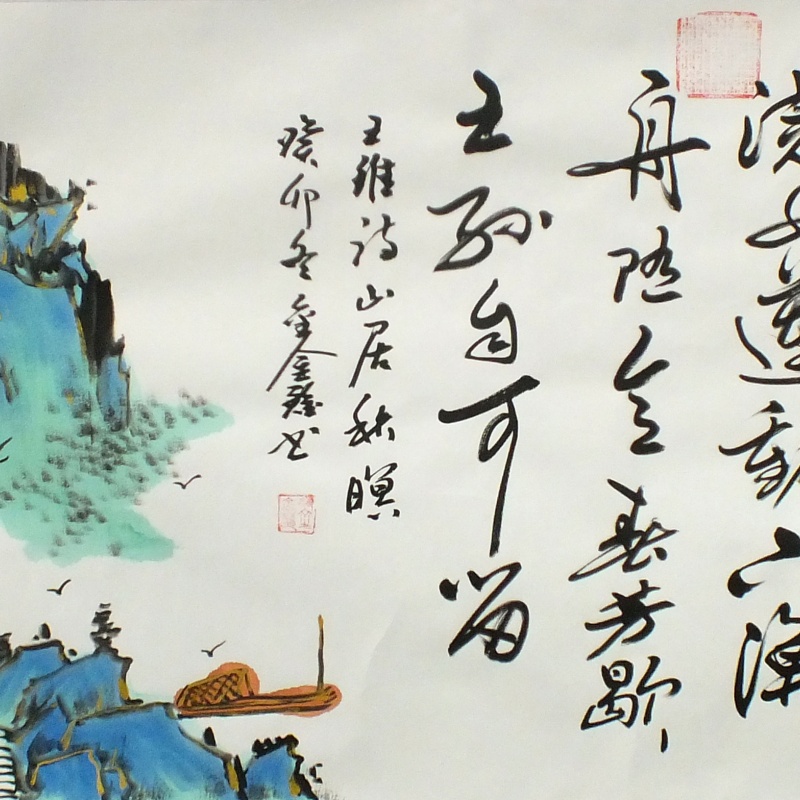 浣女蓮動下漁
舟随意春芳歇
王孫自可留
王維詩山居秋暝
癸卯冬金鑫书